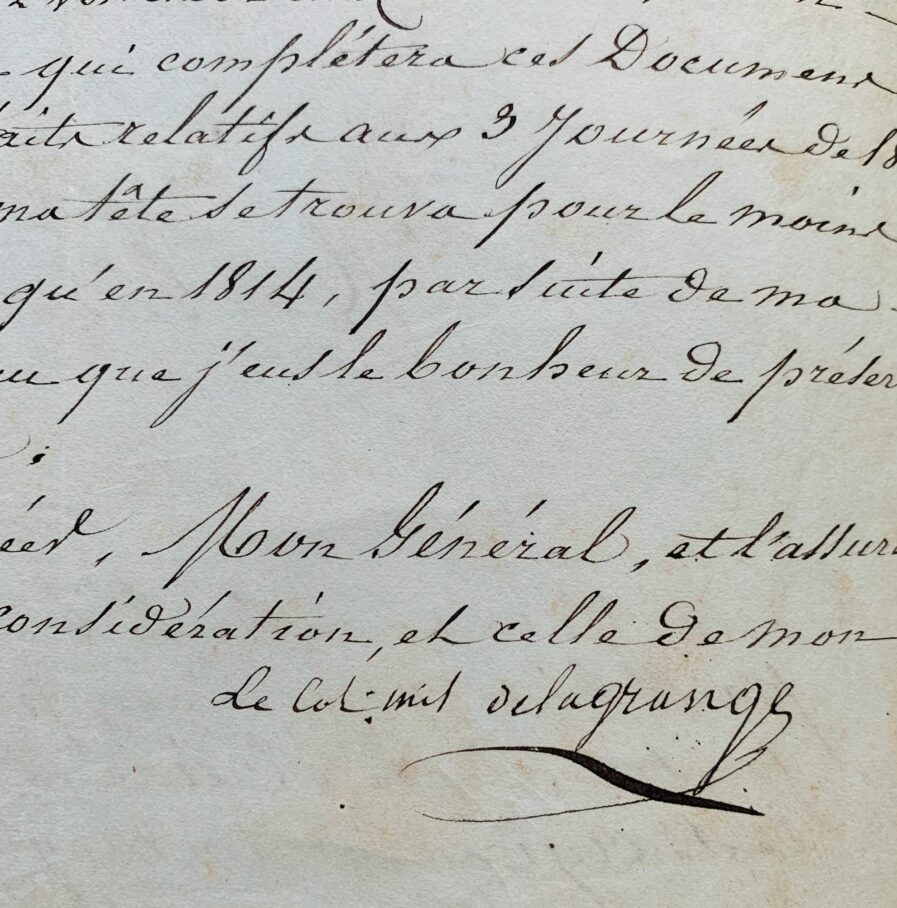 qui complétera ces Documens
faits relatifs aux 3 Journées de 18
ma tête se trouva pour le moins
qu'en 1814, par suite de ma
que j'eus le bonheur de préser
.
éer, Mon Général, et l'assura
considération, et celle de mon
Le Col. mil delagrange